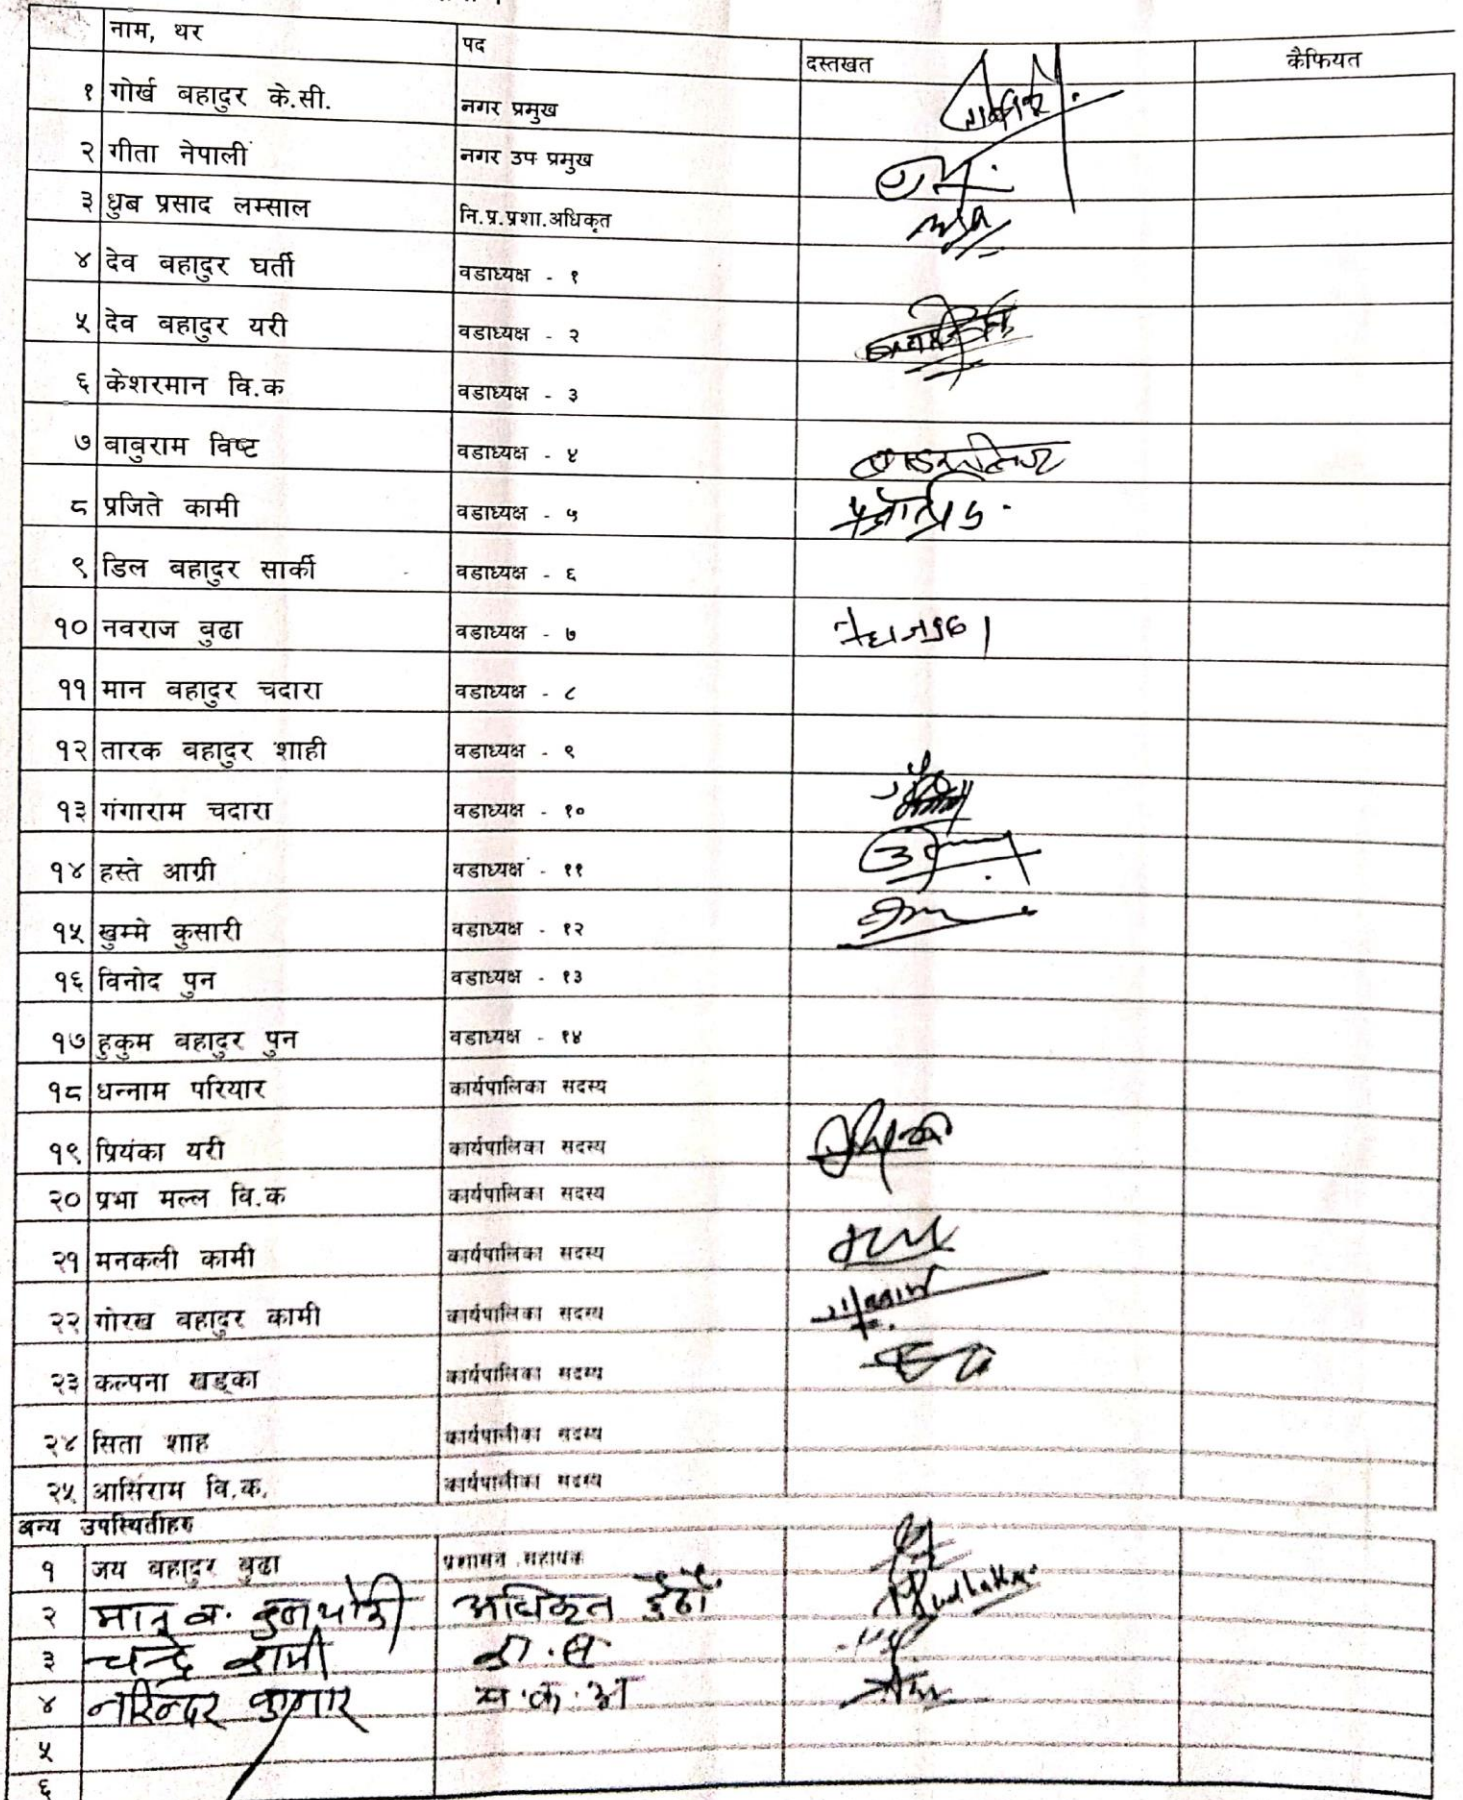 नाम, थर पद दस्तखत कैफियत
१ गोर्ख बहादुर के.सी. नगर प्रमुख
२ गीता नेपाली नगर उप प्रमुख
३ ध्रुब प्रसाद लम्साल नि.प्र.प्रशा.अधिकृत
४ देव बहादुर घर्ती वडाध्यक्ष - १
५ देव बहादुर यरी वडाध्यक्ष - २
६ केशरमान वि.क वडाध्यक्ष - ३
७ बाबुराम विष्ट वडाध्यक्ष - ४
८ प्रजिते कामी वडाध्यक्ष - ५
९ डिल बहादुर सार्की वडाध्यक्ष - ६
१० नवराज बुढा वडाध्यक्ष - ७
११ मान बहादुर चदारा वडाध्यक्ष - ८
१२ तारक बहादुर शाही वडाध्यक्ष - ९
१३ गंगाराम चदारा वडाध्यक्ष - १०
१४ हस्ते आग्री वडाध्यक्ष - ११
१५ खुम्मे कुसारी वडाध्यक्ष - १२
१६ विनोद पुन वडाध्यक्ष - १३
१७ हुकुम बहादुर पुन वडाध्यक्ष - १४
१८ धन्नाम परियार कार्यपालिका सदस्य
१९ प्रियंका यरी कार्यपालिका सदस्य
२० प्रभा मल्ल वि.क कार्यपालिका सदस्य
२१ मनकली कामी कार्यपालिका सदस्य
२२ गोरख बहादुर कामी कार्यपालिका सदस्य
२३ कल्पना खड्का कार्यपालिका सदस्य
२४ सिता शाह कार्यपालीका सदस्य
२५ आसिराम वि.क. कार्यपालीका सदस्य
अन्य उपस्थितीहरु
१ जय बहादुर बुढा प्रशासन सहायक
२ मान ब. अधिकृत छैठौं
३ चन्द्रे कामी का.स
४ नरिन्दर कुमार
५
६